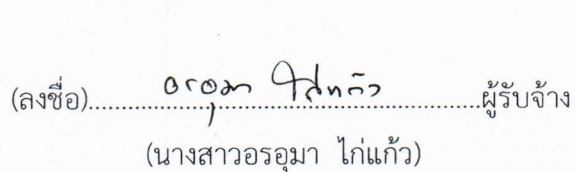 (ลงชื่อ)......อรอุมา ไก่แก้ว......ผู้รับจ้าง
(นางสาวอรอุมา ไก่แก้ว)